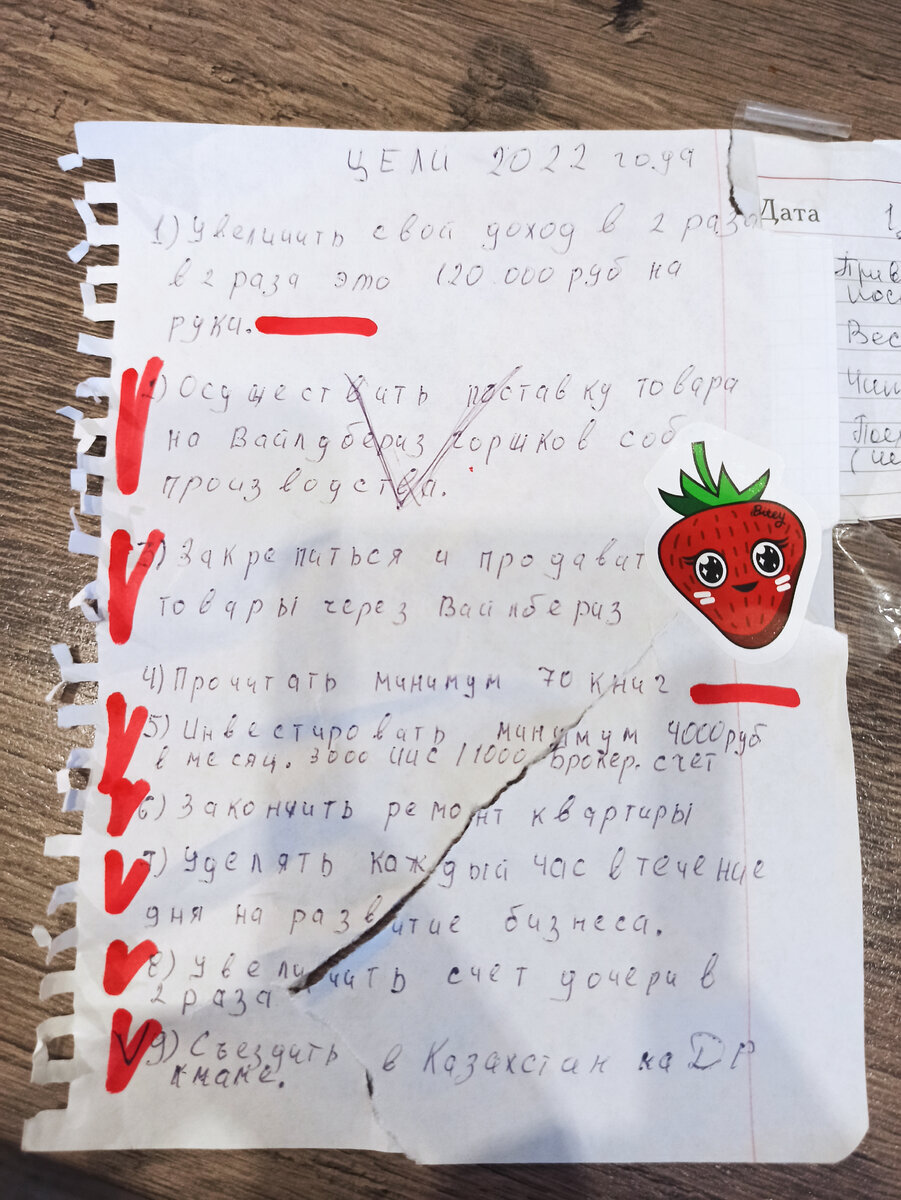 ЦЕЛИ 2022 года
1) Увеличить свой доход в 2 раза
в 2 раза это 120.000 руб на
руки.
2) Осуществить поставку товара
на Вайлдбераз горшков соб
производства.
3) Закрепиться и продават
товары через Вайлбераз
4) Прочитать минимум 70 книг
5) Инвестировать минимум 4000 руб
в месяц. 3000 ИИС / 1000 брокер. счет
6) Закончить ремонт квартиры
7) Уделять каждый час в течение
дня на развитие бизнеса.
8) Увеличить счет дочери в
2 раза
9) Съездить в Казахстан на ДР
к маме.
Дата
Вес